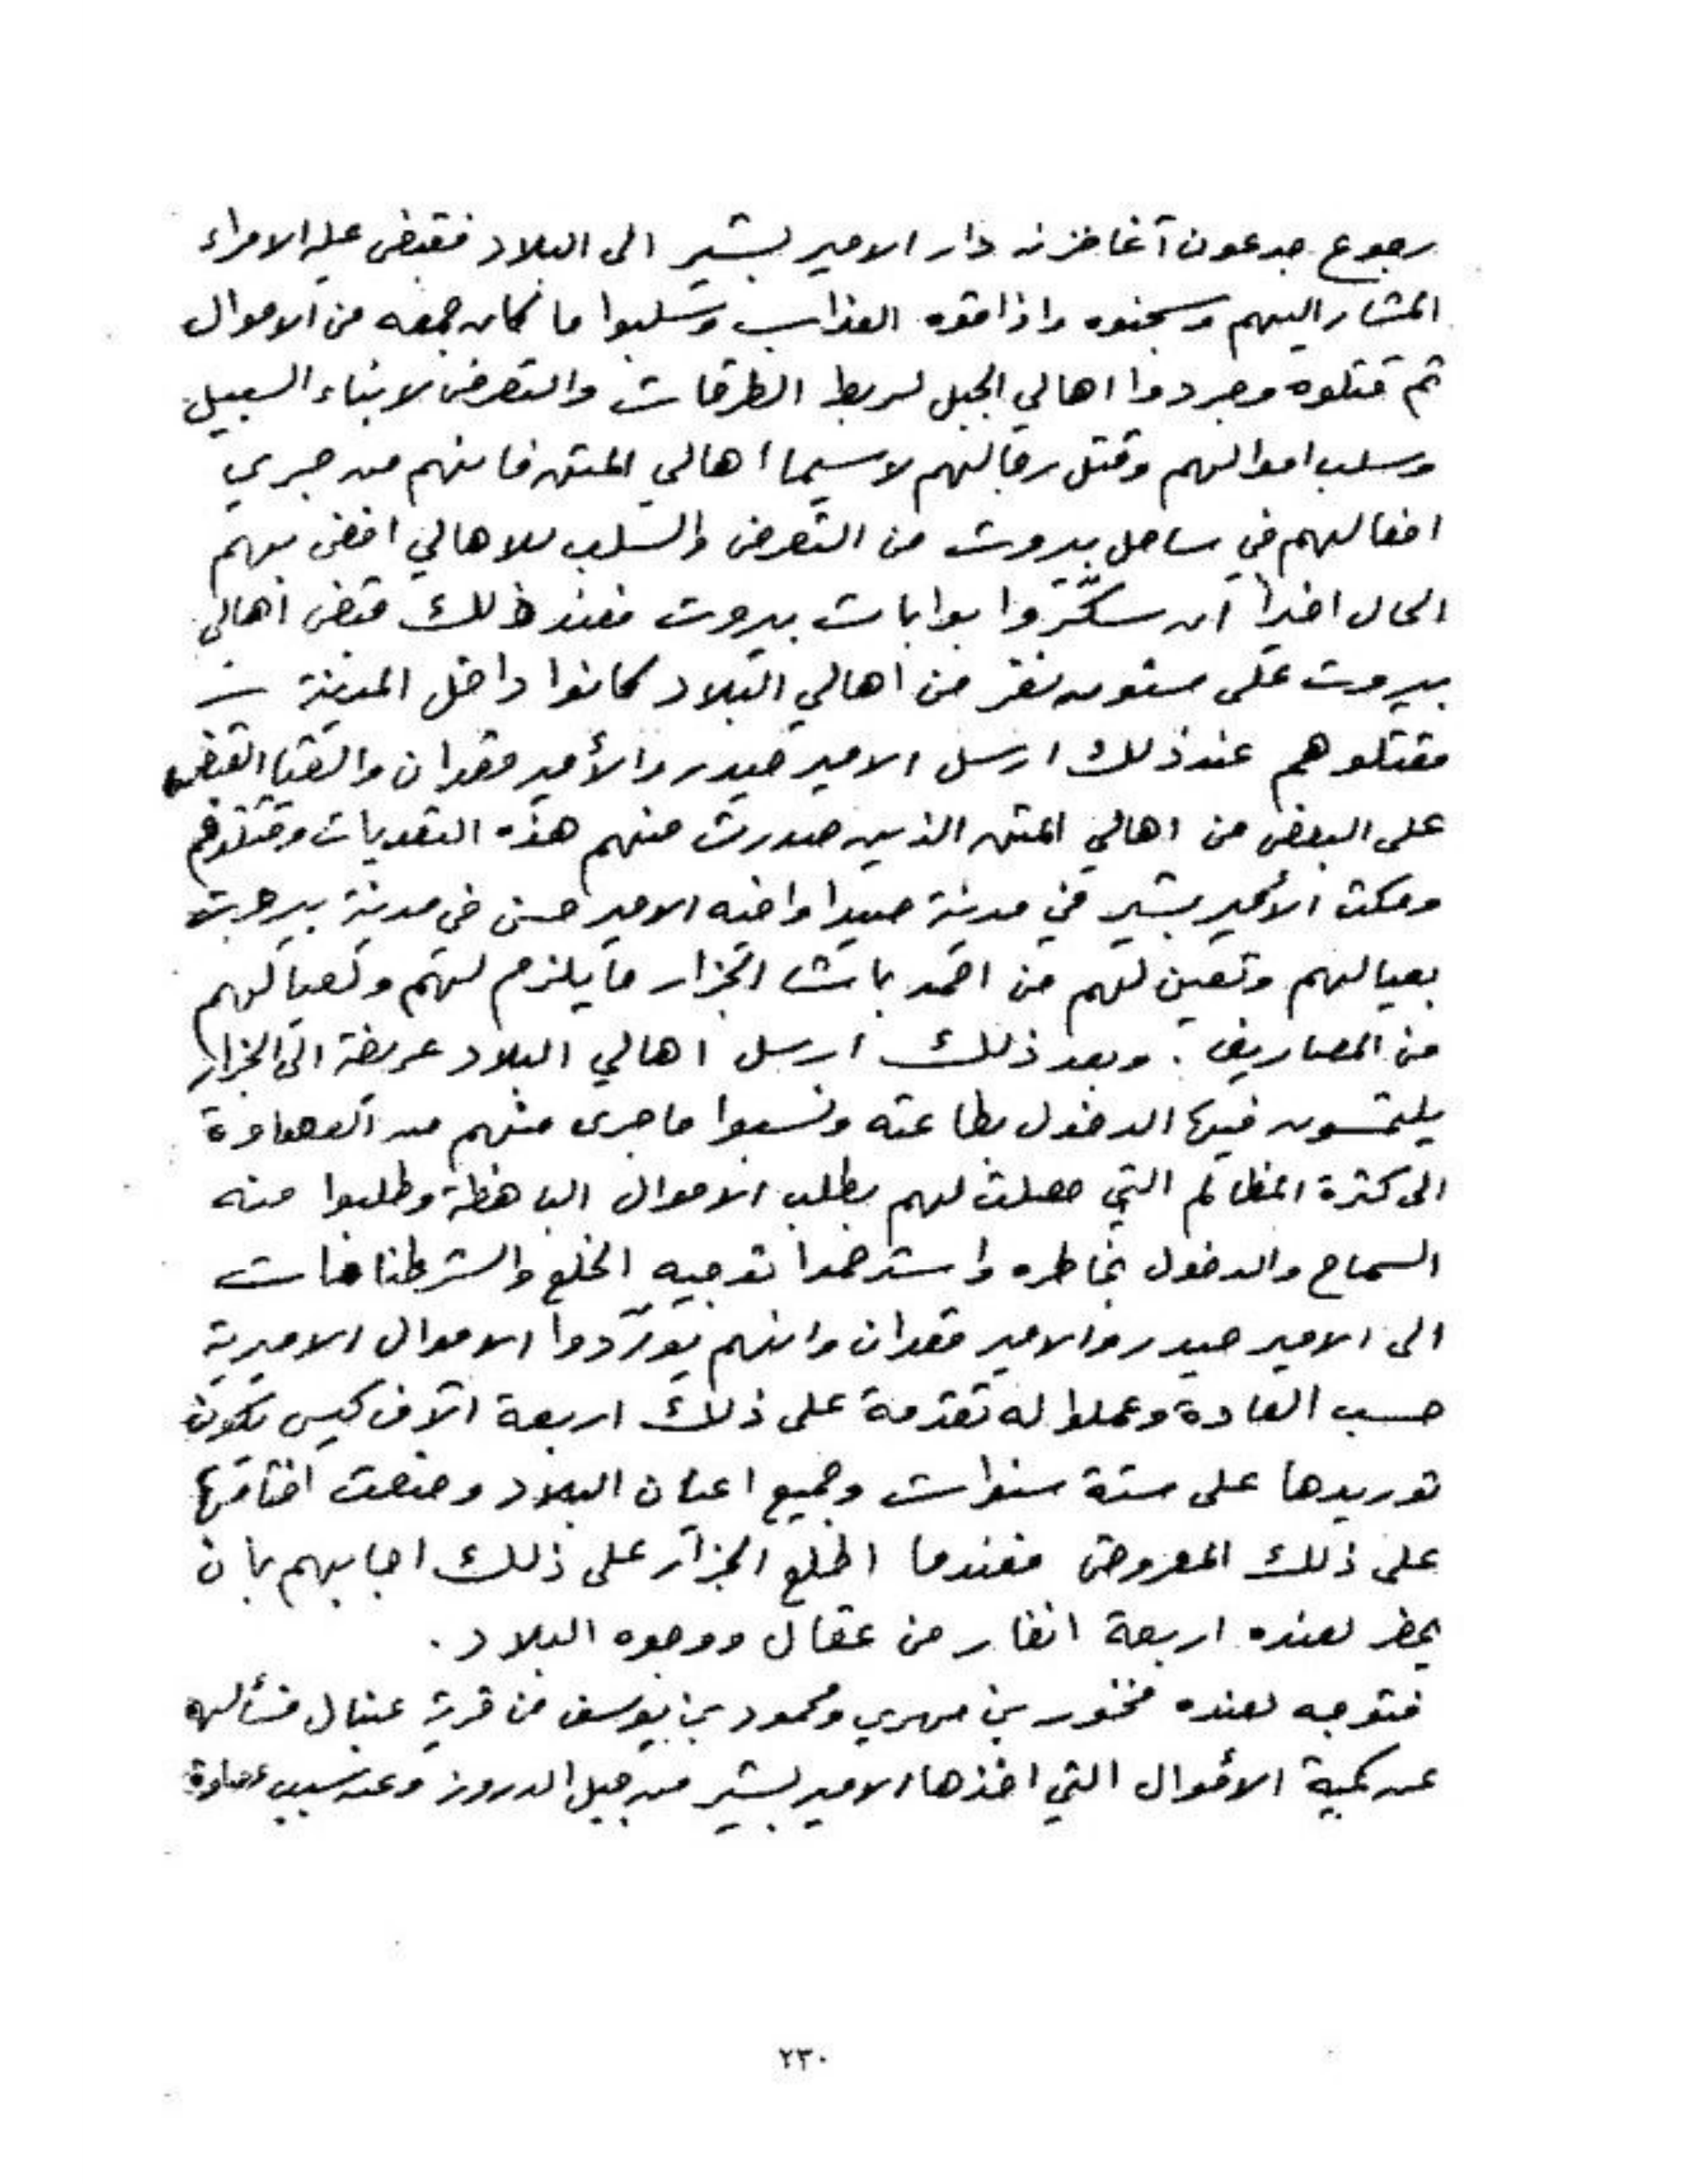 رجوع جدعون آغا خزنه دار الامير بشير الى البلاد فقبض عليه الامراء
المشار اليهم وسجنوه واذاقوه العذاب وسلبوا ما كان جمعه من الاموال
ثم قتلوه وجردوا اهالي الجبل لربط الطرقات والتعرض لابناء السبيل
وسلب اموالهم وقتل رجالهم لاسيما اهالي المتن فانهم من جري
افعالهم في ساحل بيروت من التعرض والسلب للاهالي افضى بهم
الحال اخيراً ان سكّروا بوابات بيروت فعند ذلك قبض اهالي
بيروت على ستون نفر من اهالي البلاد كانوا داخل المدينة
فقتلوهم عند ذلك ارسل الامير حيدر والأمير قعدان والقيا القبض
على البعض من اهالي المتن الذين صدرت منهم هذه التعديات وقتلوهم
ومكث الأمير بشير في مدينة صيدا واخيه الامير حسن في مدينة بيروت
بعيالهم وتعين لهم من احمد باشا الجزار ما يلزم لهم ولعيالهم
من المصاريف . وبعد ذلك ارسل اهالي البلاد عريضة الى الجزار
يلتمسون فيها الدخول بطاعته ونسبوا ما جرى منهم من العصاوة
الى كثرة المظالم التي حصلت لهم بطلب الاموال الباهظة وطلبوا منه
السماح والدخول بخاطره واسترحموا توجيه الخلع والشرطنامات
الى الامير حيدر والامير قعدان وانهم يورّدوا الاموال الاميرية
حسب العادة وعملوا له تقدمة على ذلك اربعة آلاف كيس يكون
توريدها على ستة سنوات وجميع اعيان البلاد وضعت اختامها
على ذلك المعروض فعندما اطلع الجزار على ذلك اجابهم بان
يحضر لعنده اربعة انفار من عقال ووجوه البلاد .
فتوجه لعنده مخور بن مهري ومحمود بن يوسف من قرية عينال فسألهم
عن كمية الأموال التي اخذها الامير بشير من جبل الدروز وعن سبب عصاوة
٢٣٠